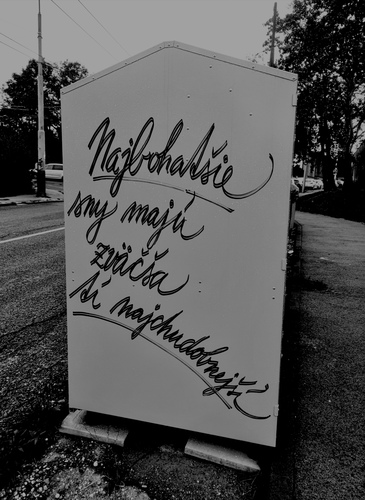 Najbohatšie
sny majú
zväčša
tí najchudobnejší